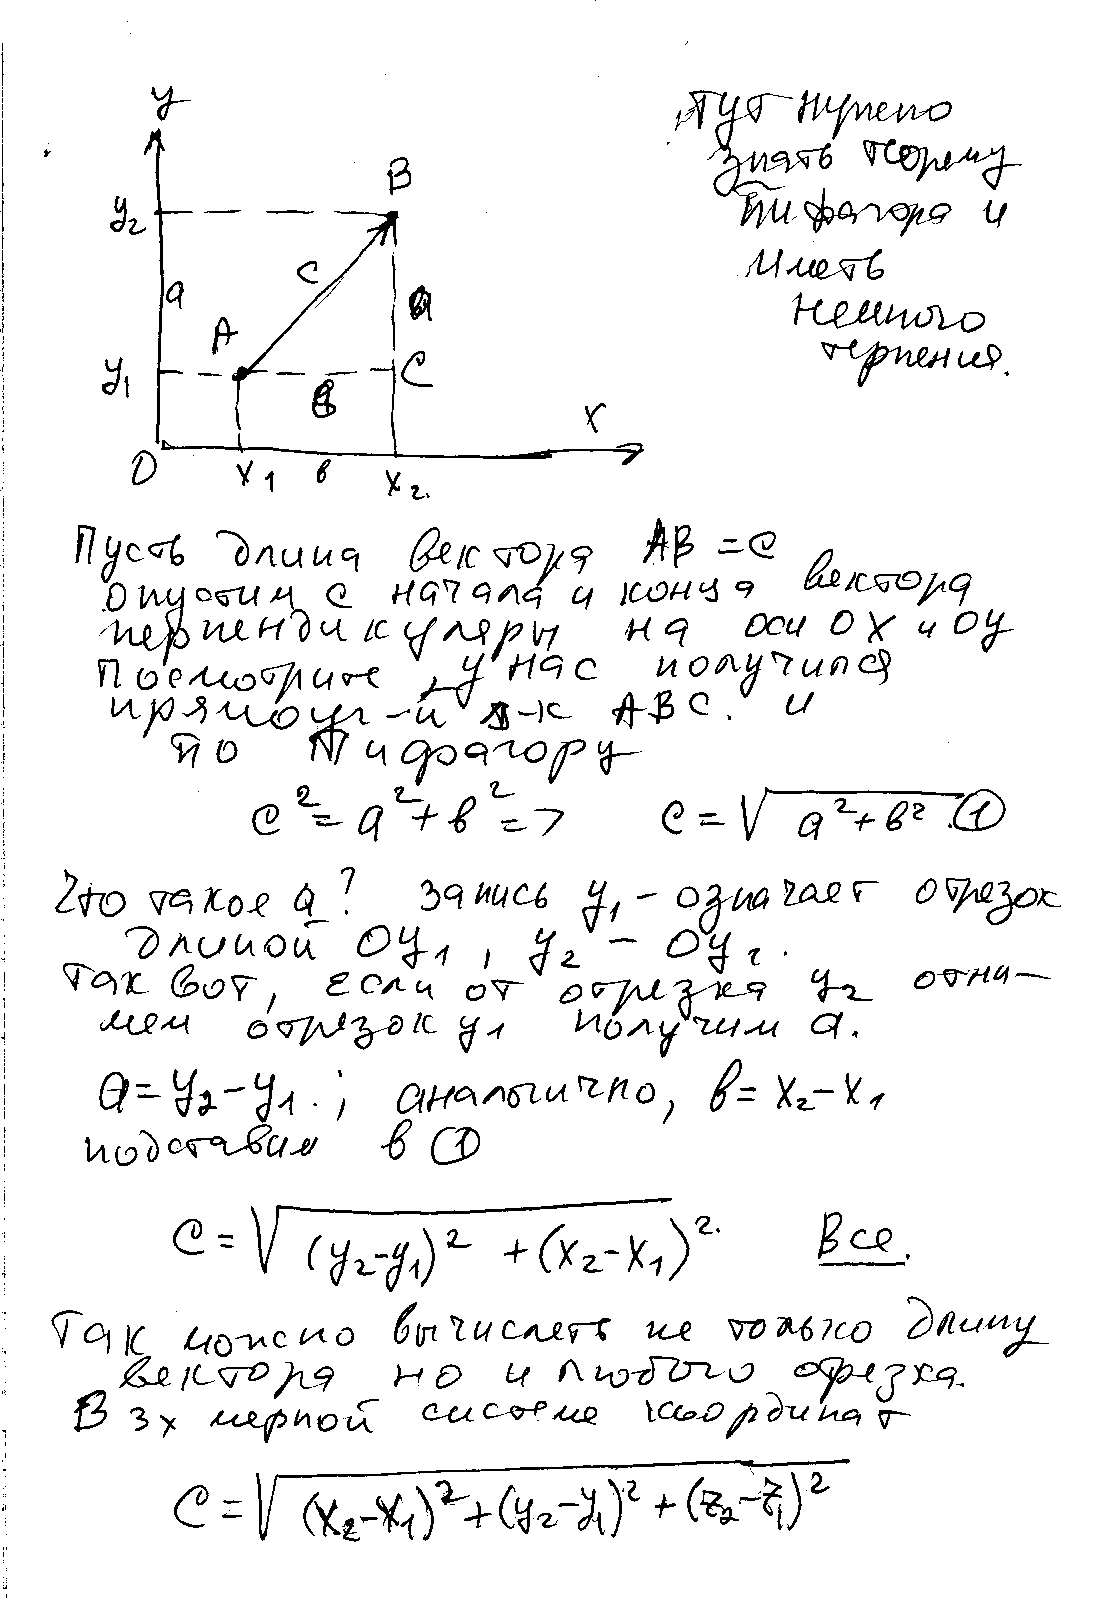 y
Тут нужно
знать теорему
Пифагора и
иметь
немного
терпения.
B
y₂
c
a
a
A
y₁
C
в
x
O
x₁
в
x₂.
Пусть длина вектора AB = c
опустим с начала и конца вектора
перпендикуляры на оси OX и OY
Посмотрите, у нас получился
прямоуг-й Δ-к ABC. и
по Пифагору
c² = a² + в² => c = √a² + в² ①
Что такое a? запись y₁ - означает отрезок
длиной Oy₁, y₂ - Oy₂.
Так вот, если от отрезка y₂ отни-
мем отрезок y₁ получим a.
a = y₂ - y₁.; аналогично, в = x₂ - x₁
подставим в ①
c = √(y₂-y₁)² + (x₂-x₁)². Все.
Так можно вычислеть не только длину
вектора но и любого отрезка.
В 3х мерной системе координат
c = √(x₂-x₁)² + (y₂-y₁)² + (z₂-z₁)²